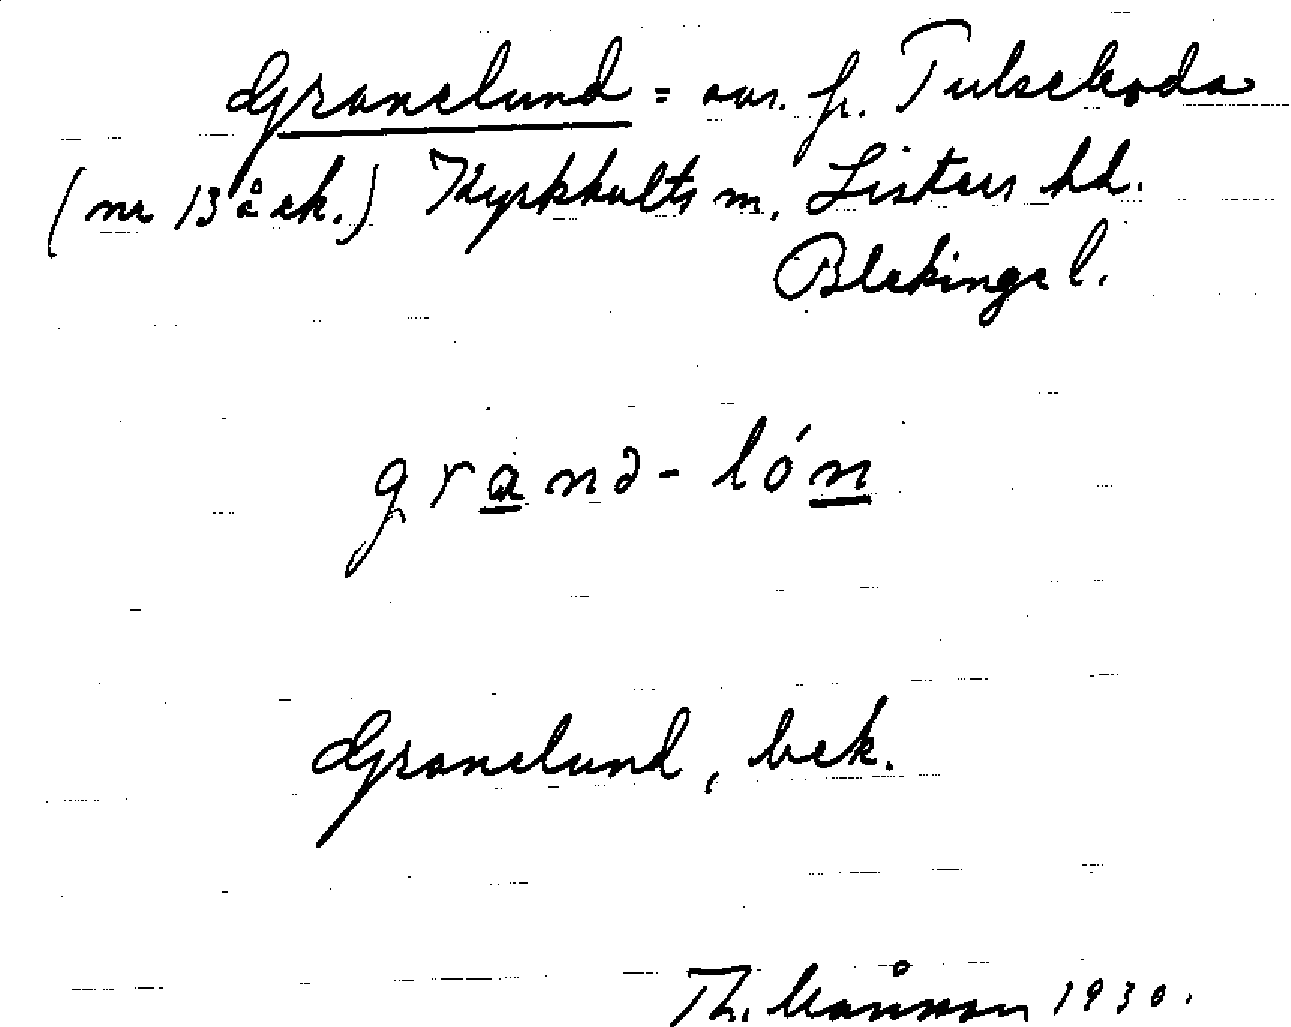 Granelund = avs. fr. Tulseboda
(nr 13 å ek.) Kyrkhults sn, Listers hd.
Blekinge l.
granə-lón
Granelund, bek.
Th. 1930.